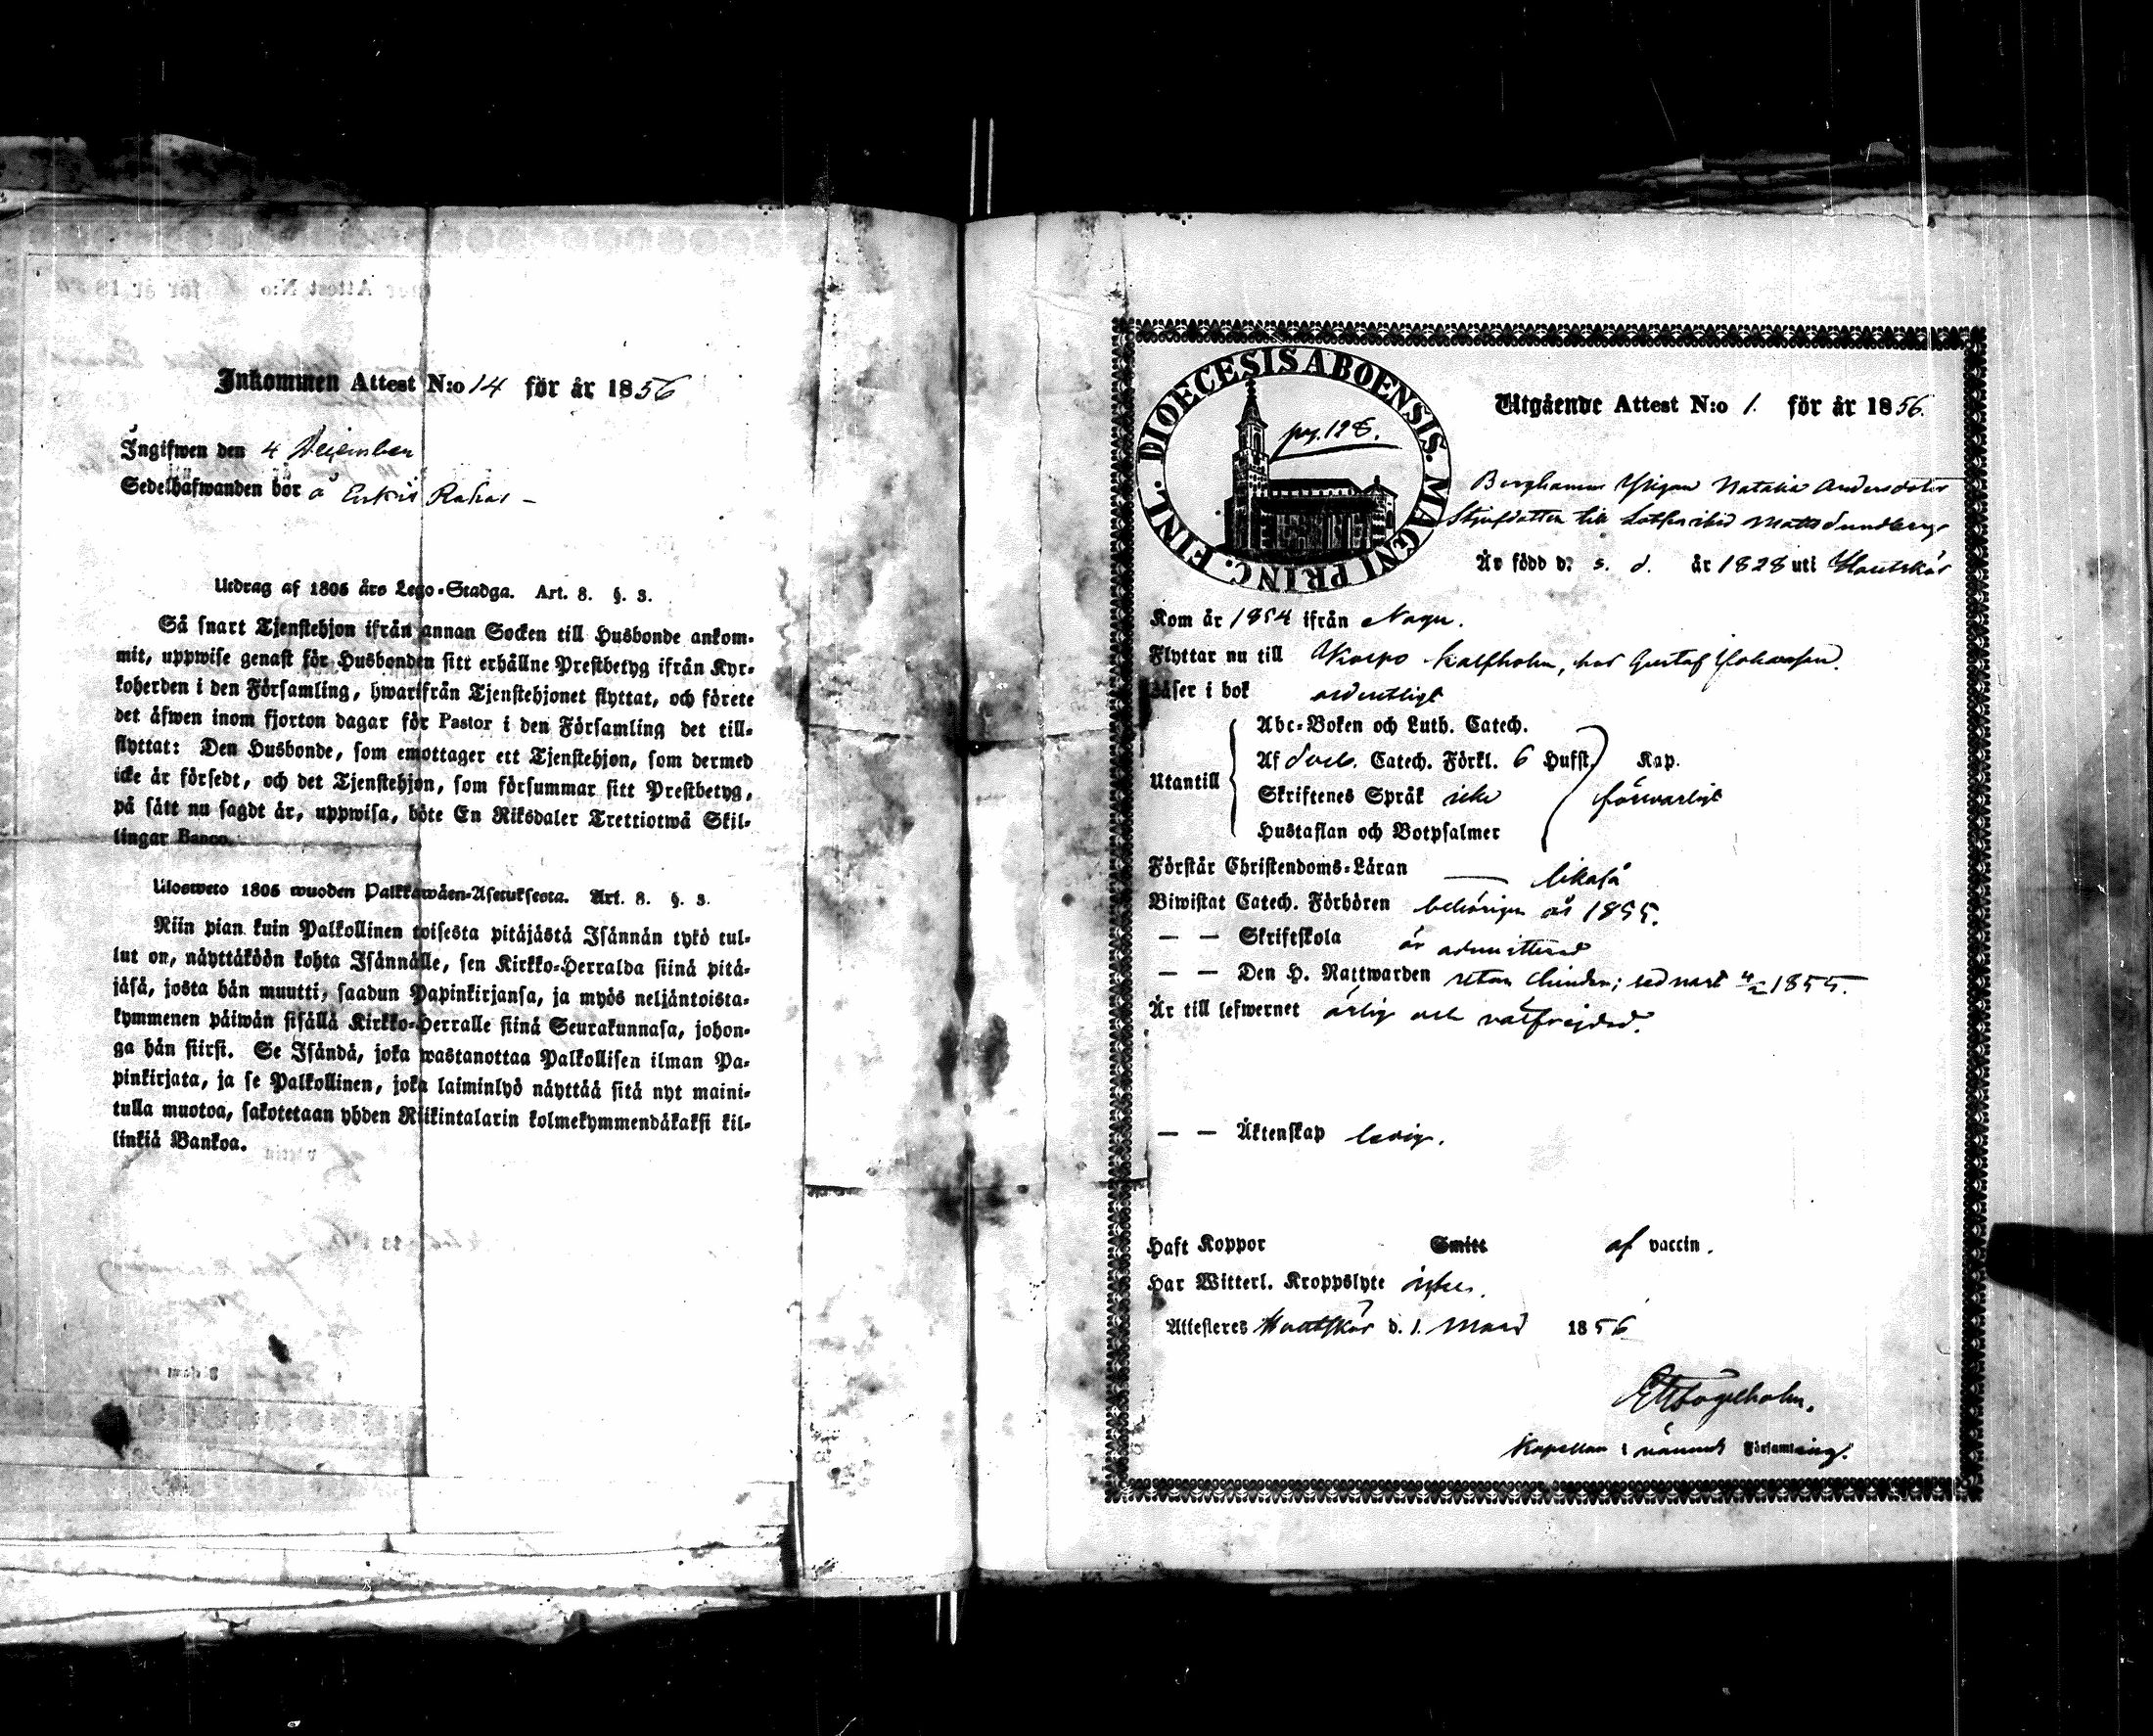 Inkommen Attest N:o 14 för år 1856
Ingifwen den 4 December
Sedelhafwanden bör å
Utdrag af 1805 års Lego-Stadga. Art. 8. §. 3.
Så snart Tjenstehjon ifrån annan Socken till Husbonde ankom-
mit, uppwise genast för Husbonden sitt erhållne Prestbetyg ifrån Kyr-
koherden i den Församling, hwarifrån Tjenstehjonet flyttat, och förete
det äfwen inom fjorton dagar för Pastor i den Församling det till-
flyttat: Den Husbonde, som emottager ett Tjenstehjon, som dermed
icke är försedt, och det Tjenstehjon, som försummar sitt Prestbetyg,
på sätt nu sagdt är, uppwisa, böte En Riksdaler Trettiotwå Skil-
lingar Banco.
Ulosweto 1805 wuoden Palkkawäen-Asetuksesta. Art. 8. §. 3.
Niin pian kuin Palkollinen toisesta pitäjästä Isännän tykö tul-
lut on, näyttäköön kohta Isännälle, sen Kirkko-Herralda siinä pitä-
jäsä, josta hän muutti, saadun Papinkirjansa, ja myös neljäntoista-
kymmenen päiwän sisällä Kirkko-Herralle siinä Seurakunnasa, johon-
ga hän siirsi. Se Isändä, joka wastanottaa Palkollisen ilman Pa-
pinkirjata, ja se Palkollinen, joka laiminlyö näyttää sitä nyt maini-
tulla muotoa, sakotetaan yhden Riikintalarin kolmekymmendäkaksi kil-
linkiä Bankoa.
DIOECESIS ABOENSIS. MAGNI PRINC. FINL.
pag. 128.
Utgående Attest N:o 1. för år 1856.
Berghamn Pigan Natalia Andersdotter
Styfdotter till Mats Sundberg
Är född d. s. d. år 1828 uti Houtskär
Kom år 1854 ifrån Nagu.
Flyttar nu till Korpo Kalfholm, hos Gustaf Johansson.
Läser i bok ordentligt
Utantill
Abc-Boken och Luth. Catech.
Af Catech. Förkl. 6 Hufst. Kap.
Skriftenes Språk icke försvarligt
Hustaflan och Botpsalmer
Förstår Christendoms-Läran likaså
Biwistat Catech. Förhören behörigen år 1855.
— — Skriftskola är admitterad
— — Den H. Nattwarden utan hinder; sednast 1855.
Är till lefwernet ärlig och välfrejdad.
— — Äktenskap ledig.
Haft Koppor Smitt af vaccin.
Har Witterl. Kroppslyte intet.
Attesteres Houtskär d. 1. Mars 1856
Kapellan i nämnd Församling.